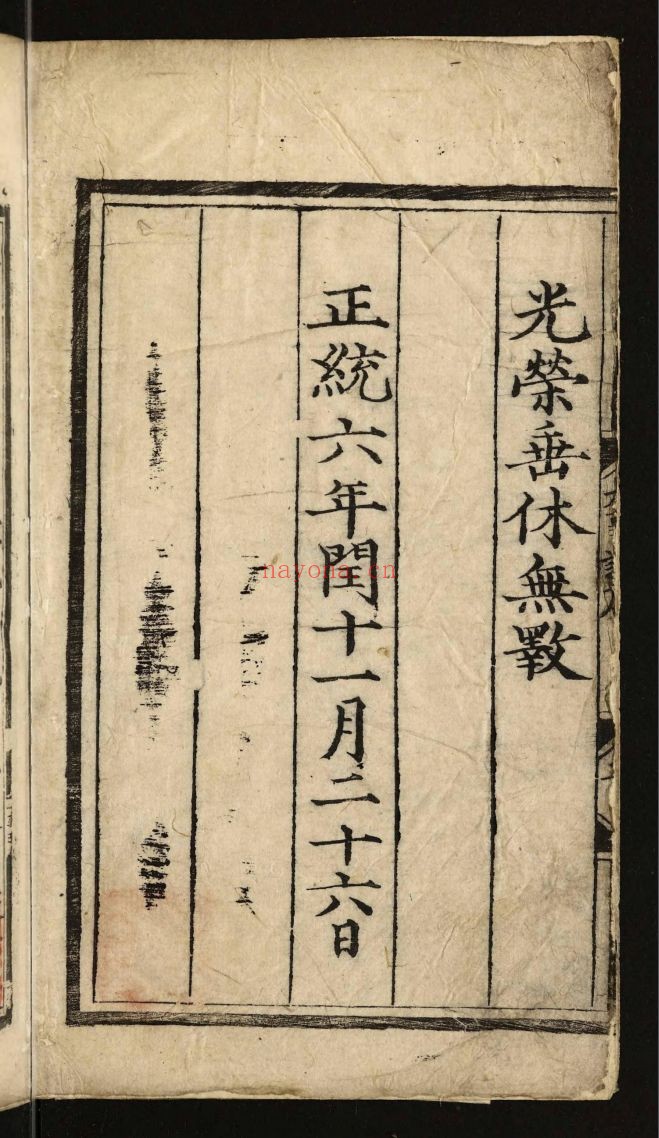 光榮垂休無斁
正統六年閏十一月二十六日
nayona.cn